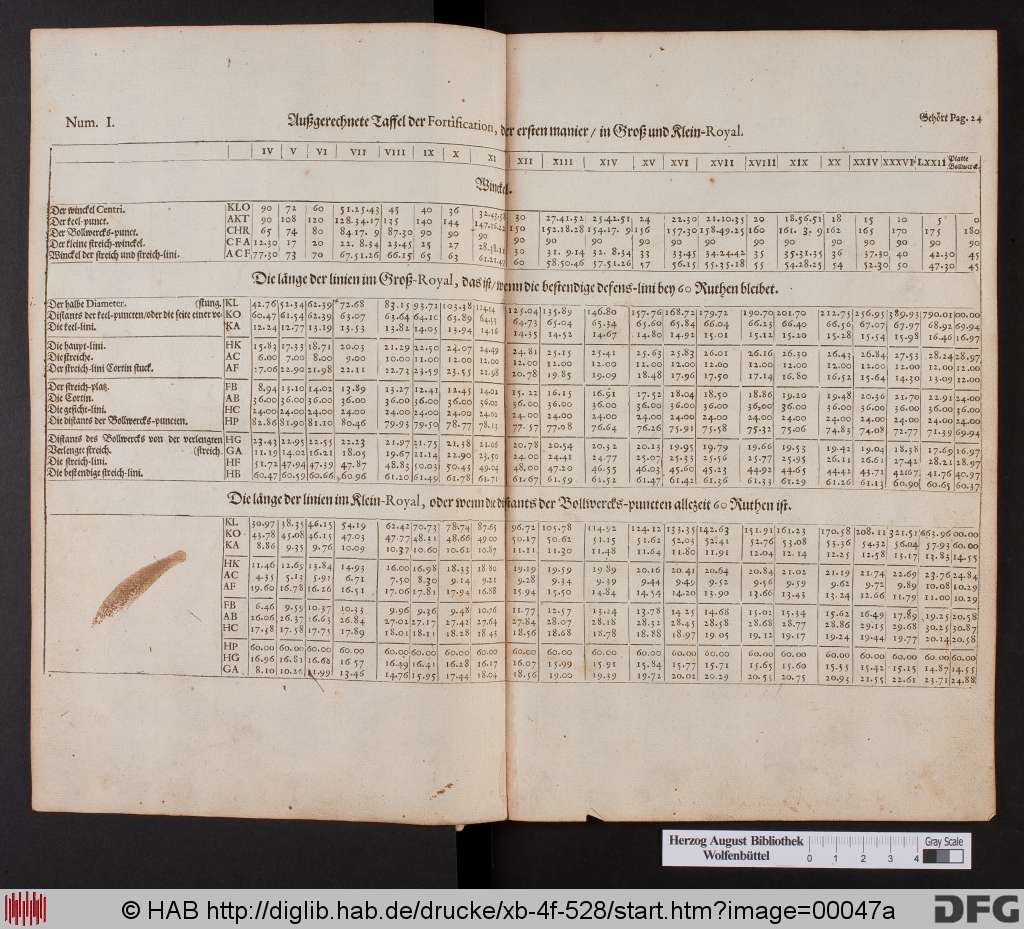 Num. I.
Außgerechnete Taffel der Fortification, der ersten manier / in Groß und Klein-Royal.
Gehört Pag. 24
IV V VI VII VIII IX X XI XII XIII XIV XV XVI XVII XVIII XIX XX XXIV XXXVI LXXII Platte Bollwerck.
Winckel.
Der winckel Centri. KLO 90 72 60 51.25.43 45 40 36 32.43.38 30 27.41.32 25.42.51 24 22.30 21.10.35 20 18.56.51 18 15 10 5 0
Der keel-punct. AKT 90 108 120 128.34.17 135 140 144 147.16.22 150 152.18.28 154.17. 9 156 157.30 158.49.25 160 161. 3. 9 162 165 170 175 180
Der Bollwercks-punct. CHR 65 74 80 84.17. 9 87.30 90 90 90 90 90 90 90 90 90 90 90 90 90 90 90 90
Der kleine streich-winckel. CFA 12.30 17 20 22. 8.34 23.45 25 27 28.38.11 30 31. 9.14 32. 8.34 33 33.45 34.24.42 35 35.31.35 36 37.30 40 42.30 45
Winckel der streich und streich-lini. ACF 77.30 73 70 67.51.26 66.15 65 63 61.21.49 60 58.50.46 57.51.26 57 56.15 55.35.18 55 54.28.25 54 52.30 50 47.30 45
Die länge der linien im Groß-Royal, das ist / wenn die bestendige defens-lini bey 60 Ruthen bleibet.
Der halbe Diameter. KL 42.76 52.34 62.39 72.68 83.15 93.72 103.38 125.04 135.89 146.80 157.76 168.72 179.72 190.70 201.70 212.75 256.95 389.93 790.01 00.00
Distants der keel-puncten/oder die seite einer ve- (stung. KO 60.47 61.54 62.39 63.07 63.64 64.10 63.89 64.73 65.04 65.34 65.60 65.84 66.04 66.23 66.40 66.56 67.07 67.97 68.92 69.94
Die keel-lini. KA 12.24 12.77 13.19 13.53 13.82 14.05 13.94 14.35 14.52 14.67 14.80 14.92 15.01 15.12 15.20 15.28 15.54 15.98 16.46 16.97
Die haupt-lini. HK 15.83 17.33 18.71 20.03 21.29 22.50 24.07 24.49 24.81 25.15 25.41 25.63 25.83 26.01 26.16 26.30 26.43 26.84 27.53 28.24 28.97
Die streiche. AC 6.00 7.00 8.00 9.00 10.00 11.00 12.00 12.00 12.00 12.00 12.00 12.00 12.00 12.00 12.00 12.00 12.00 12.00 12.00 12.00 12.00
Der streich-lini Cortin stuck. AF 27.06 22.90 21.98 22.11 22.73 23.59 23.55 21.98 20.78 19.85 19.09 18.48 17.96 17.50 17.14 16.80 16.52 15.64 14.30 13.09 12.00
Der streich-platz. FB 8.94 13.10 14.02 13.89 13.27 12.41 12.45 14.02 15.22 16.15 16.91 17.52 18.04 18.50 18.86 19.20 19.48 20.36 21.70 22.91 24.00
Die Cortin. AB 36.00 36.00 36.00 36.00 36.00 36.00 36.00 36.00 36.00 36.00 36.00 36.00 36.00 36.00 36.00 36.00 36.00 36.00 36.00 36.00 36.00
Die gesicht-lini. HC 24.00 24.00 24.00 24.00 24.00 24.00 24.00 24.00 24.00 24.00 24.00 24.00 24.00 24.00 24.00 24.00 24.00 24.00 24.00 24.00 24.00
Die distants der Bollwercks-puncten. HP 82.86 81.90 81.10 80.46 79.93 79.50 78.77 78.13 77.57 77.08 76.64 76.26 75.91 75.58 75.32 75.06 74.83 74.08 72.77 71.39 69.94
Distants des Bollwercks von der verlengten HG 23.43 22.95 22.55 22.23 21.97 21.75 21.38 21.06 20.78 20.54 20.32 20.13 19.95 19.79 19.66 19.53 19.42 19.04 18.38 17.69 16.97
Verlengte streich. (streich. GA 11.19 14.02 16.21 18.05 19.67 21.14 22.90 23.50 24.00 24.41 24.77 25.07 25.35 25.56 25.77 25.95 26.11 26.61 27.42 28.21 28.97
Die streich-lini. HF 51.72 47.94 47.39 47.87 48.83 50.03 50.43 49.04 48.00 47.20 46.55 46.03 45.60 45.23 44.92 44.65 44.42 43.71 42.67 41.76 40.97
Die bestendige streich-lini. HB 60.47 60.59 60.66 60.96 61.20 61.49 61.78 61.71 61.67 61.59 61.52 61.47 61.42 61.36 61.33 61.29 61.26 61.13 60.90 60.65 60.37
Die länge der linien im Klein-Royal, oder wenn die distants der Bollwercks-puncten allezeit 60 Ruthen ist.
KL 30.97 38.35 46.15 54.19 62.42 70.73 78.74 87.65 96.72 105.78 114.92 124.12 133.35 142.63 151.91 161.23 170.58 208.11 321.51 663.96 00.00
KO 43.78 45.08 46.15 47.03 47.77 48.11 48.66 49.00 50.17 50.62 51.15 51.62 52.03 52.41 52.76 53.08 53.36 54.32 56.04 57.93 60.00
KA 8.86 9.35 9.76 10.09 10.37 10.60 10.61 10.87 11.11 11.30 11.48 11.64 11.80 11.91 12.04 12.14 12.25 12.58 13.17 13.83 14.55
HK 11.46 12.69 13.84 14.93 16.00 16.98 18.33 18.80 19.19 19.59 19.89 20.16 20.41 20.64 20.84 21.02 21.19 21.74 22.69 23.76 24.84
AC 4.35 5.13 5.92 6.71 7.50 8.30 9.14 9.21 9.28 9.34 9.39 9.44 9.49 9.52 9.56 9.59 9.62 9.72 9.89 10.08 10.29
AF 19.60 16.78 16.26 16.51 17.06 17.81 17.94 16.88 15.94 15.50 14.84 14.54 14.20 13.90 13.66 13.43 13.24 12.66 11.79 11.00 10.29
FB 6.46 9.59 10.37 10.33 9.96 9.36 9.48 10.76 11.77 12.57 13.24 13.78 14.25 14.68 15.02 15.34 15.62 16.49 17.89 19.25 20.58
AB 26.06 26.37 16.63 26.84 27.02 27.17 27.42 27.64 27.84 28.07 28.18 28.32 28.45 28.58 28.68 28.77 28.86 29.15 29.68 30.25 30.87
HC 17.38 17.58 17.75 17.89 18.01 18.11 18.28 18.43 18.56 18.68 18.78 18.88 18.97 19.05 19.12 19.17 19.24 19.44 19.77 20.14 20.58
HP 60.00 60.00 60.00 60.00 60.00 60.00 60.00 60.00 60.00 60.00 60.00 60.00 60.00 60.00 60.00 60.00 60.00 60.00 60.00 60.00 60.00
HG 16.96 16.81 16.68 16.57 16.49 16.41 16.28 16.17 16.07 15.99 15.91 15.84 15.77 15.71 15.65 15.60 15.55 15.42 15.15 14.87 14.55
GA 8.10 10.26 11.99 13.46 14.76 15.95 17.44 18.04 18.56 19.00 19.39 19.72 20.02 20.29 20.53 20.75 20.93 21.55 22.61 23.71 24.88
Herzog August Bibliothek
Wolfenbüttel
0 1 2 3 4
Gray Scale
© HAB http://diglib.hab.de/drucke/xb-4f-528/start.htm?image=00047a
DFG